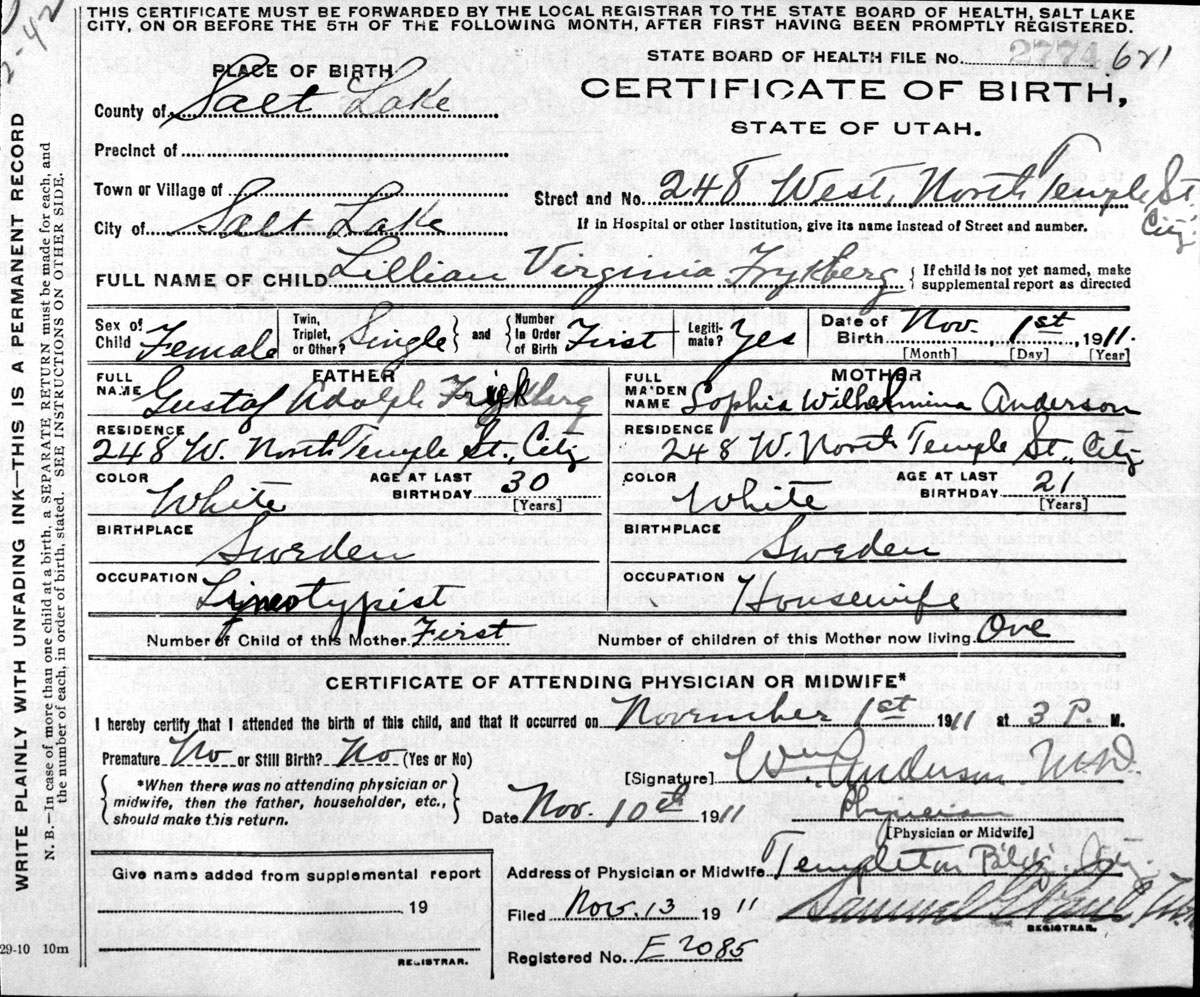 2-42
THIS CERTIFICATE MUST BE FORWARDED BY THE LOCAL REGISTRAR TO THE STATE BOARD OF HEALTH, SALT LAKE
CITY, ON OR BEFORE THE 5TH OF THE FOLLOWING MONTH, AFTER FIRST HAVING BEEN PROMPTLY REGISTERED.
WRITE PLAINLY WITH UNFADING INK—THIS IS A PERMANENT RECORD
N. B.—In case of more than one child at a birth, a SEPARATE RETURN must be made for each, and
the number of each, in order of birth, stated. SEE INSTRUCTIONS ON OTHER SIDE.
STATE BOARD OF HEALTH FILE No. 2774 621
CERTIFICATE OF BIRTH,
STATE OF UTAH.
PLACE OF BIRTH
County of Salt Lake
Precinct of
Town or Village of
City of Salt Lake
Street and No. 248 West, North Temple St
City.
If in Hospital or other Institution, give its name instead of Street and number.
FULL NAME OF CHILD Lillian Virginia Frykberg { If child is not yet named, make
supplemental report as directed
Sex of Child Female
Twin, Triplet, or Other? Single } and { Number in Order of Birth First
Legiti-mate? Yes
Date of Birth Nov. 1st, 1911.
[Month] [Day] [Year]
FATHER
FULL NAME Gustaf Adolph Frykberg
RESIDENCE
248 W. North Temple St., City
COLOR White AGE AT LAST BIRTHDAY 30
[Years]
BIRTHPLACE
Sweden
OCCUPATION
Lynotypist
MOTHER
FULL MAIDEN NAME Sophia Wilhelmina Anderson
RESIDENCE
248 W. North Temple St., City
COLOR White AGE AT LAST BIRTHDAY 21
[Years]
BIRTHPLACE
Sweden
OCCUPATION
Housewife
Number of Child of this Mother First Number of children of this Mother now living One
CERTIFICATE OF ATTENDING PHYSICIAN OR MIDWIFE*
I hereby certify that I attended the birth of this child, and that it occurred on November 1st 1911 at 3 P. M.
Premature No or Still Birth? No (Yes or No)
{ *When there was no attending physician or
midwife, then the father, householder, etc.,
should make this return. }
[Signature] Wm. Anderson M.D.
Date Nov. 10th 1911 Physician
[Physician or Midwife]
Address of Physician or Midwife Templeton Bldg. City.
Give name added from supplemental report
19
REGISTRAR.
Filed Nov. 13 1911 Samuel
REGISTRAR.
Registered No. E 2085
29-10 10m